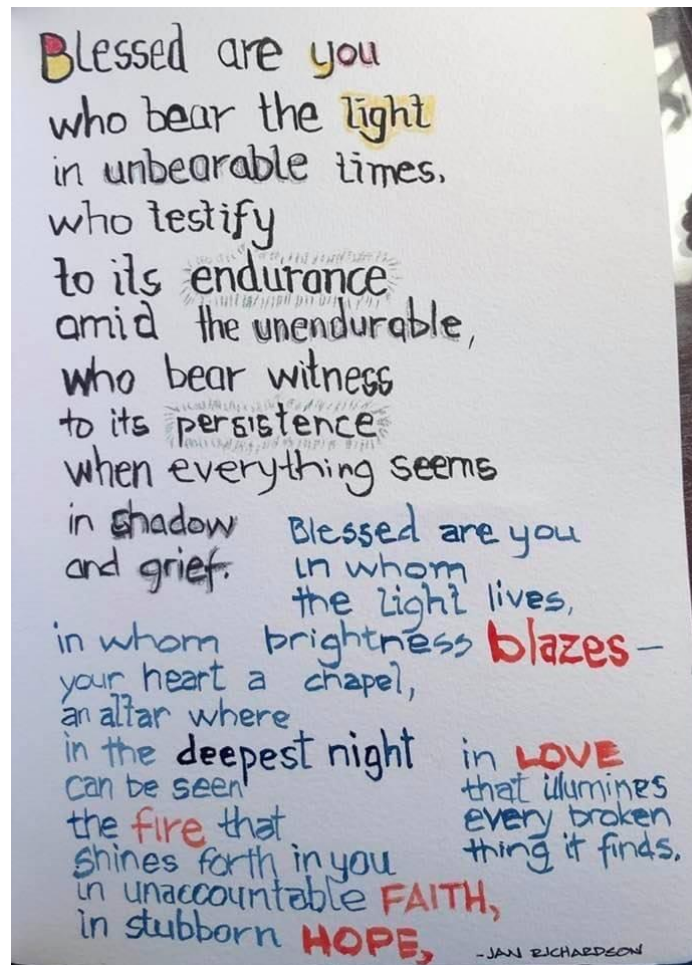 Blessed are you
who bear the light
in unbearable times,
who testify
to its endurance
amid the unendurable,
who bear witness
to its persistence
when everything seems
in shadow
and grief.
Blessed are you
in whom
the light lives,
in whom brightness blazes—
your heart a chapel,
an altar where
in the deepest night
can be seen
the fire that
shines forth in you
in unaccountable FAITH,
in stubborn HOPE,
in LOVE
that illumines
every broken
thing it finds.
-JAN RICHARDSON